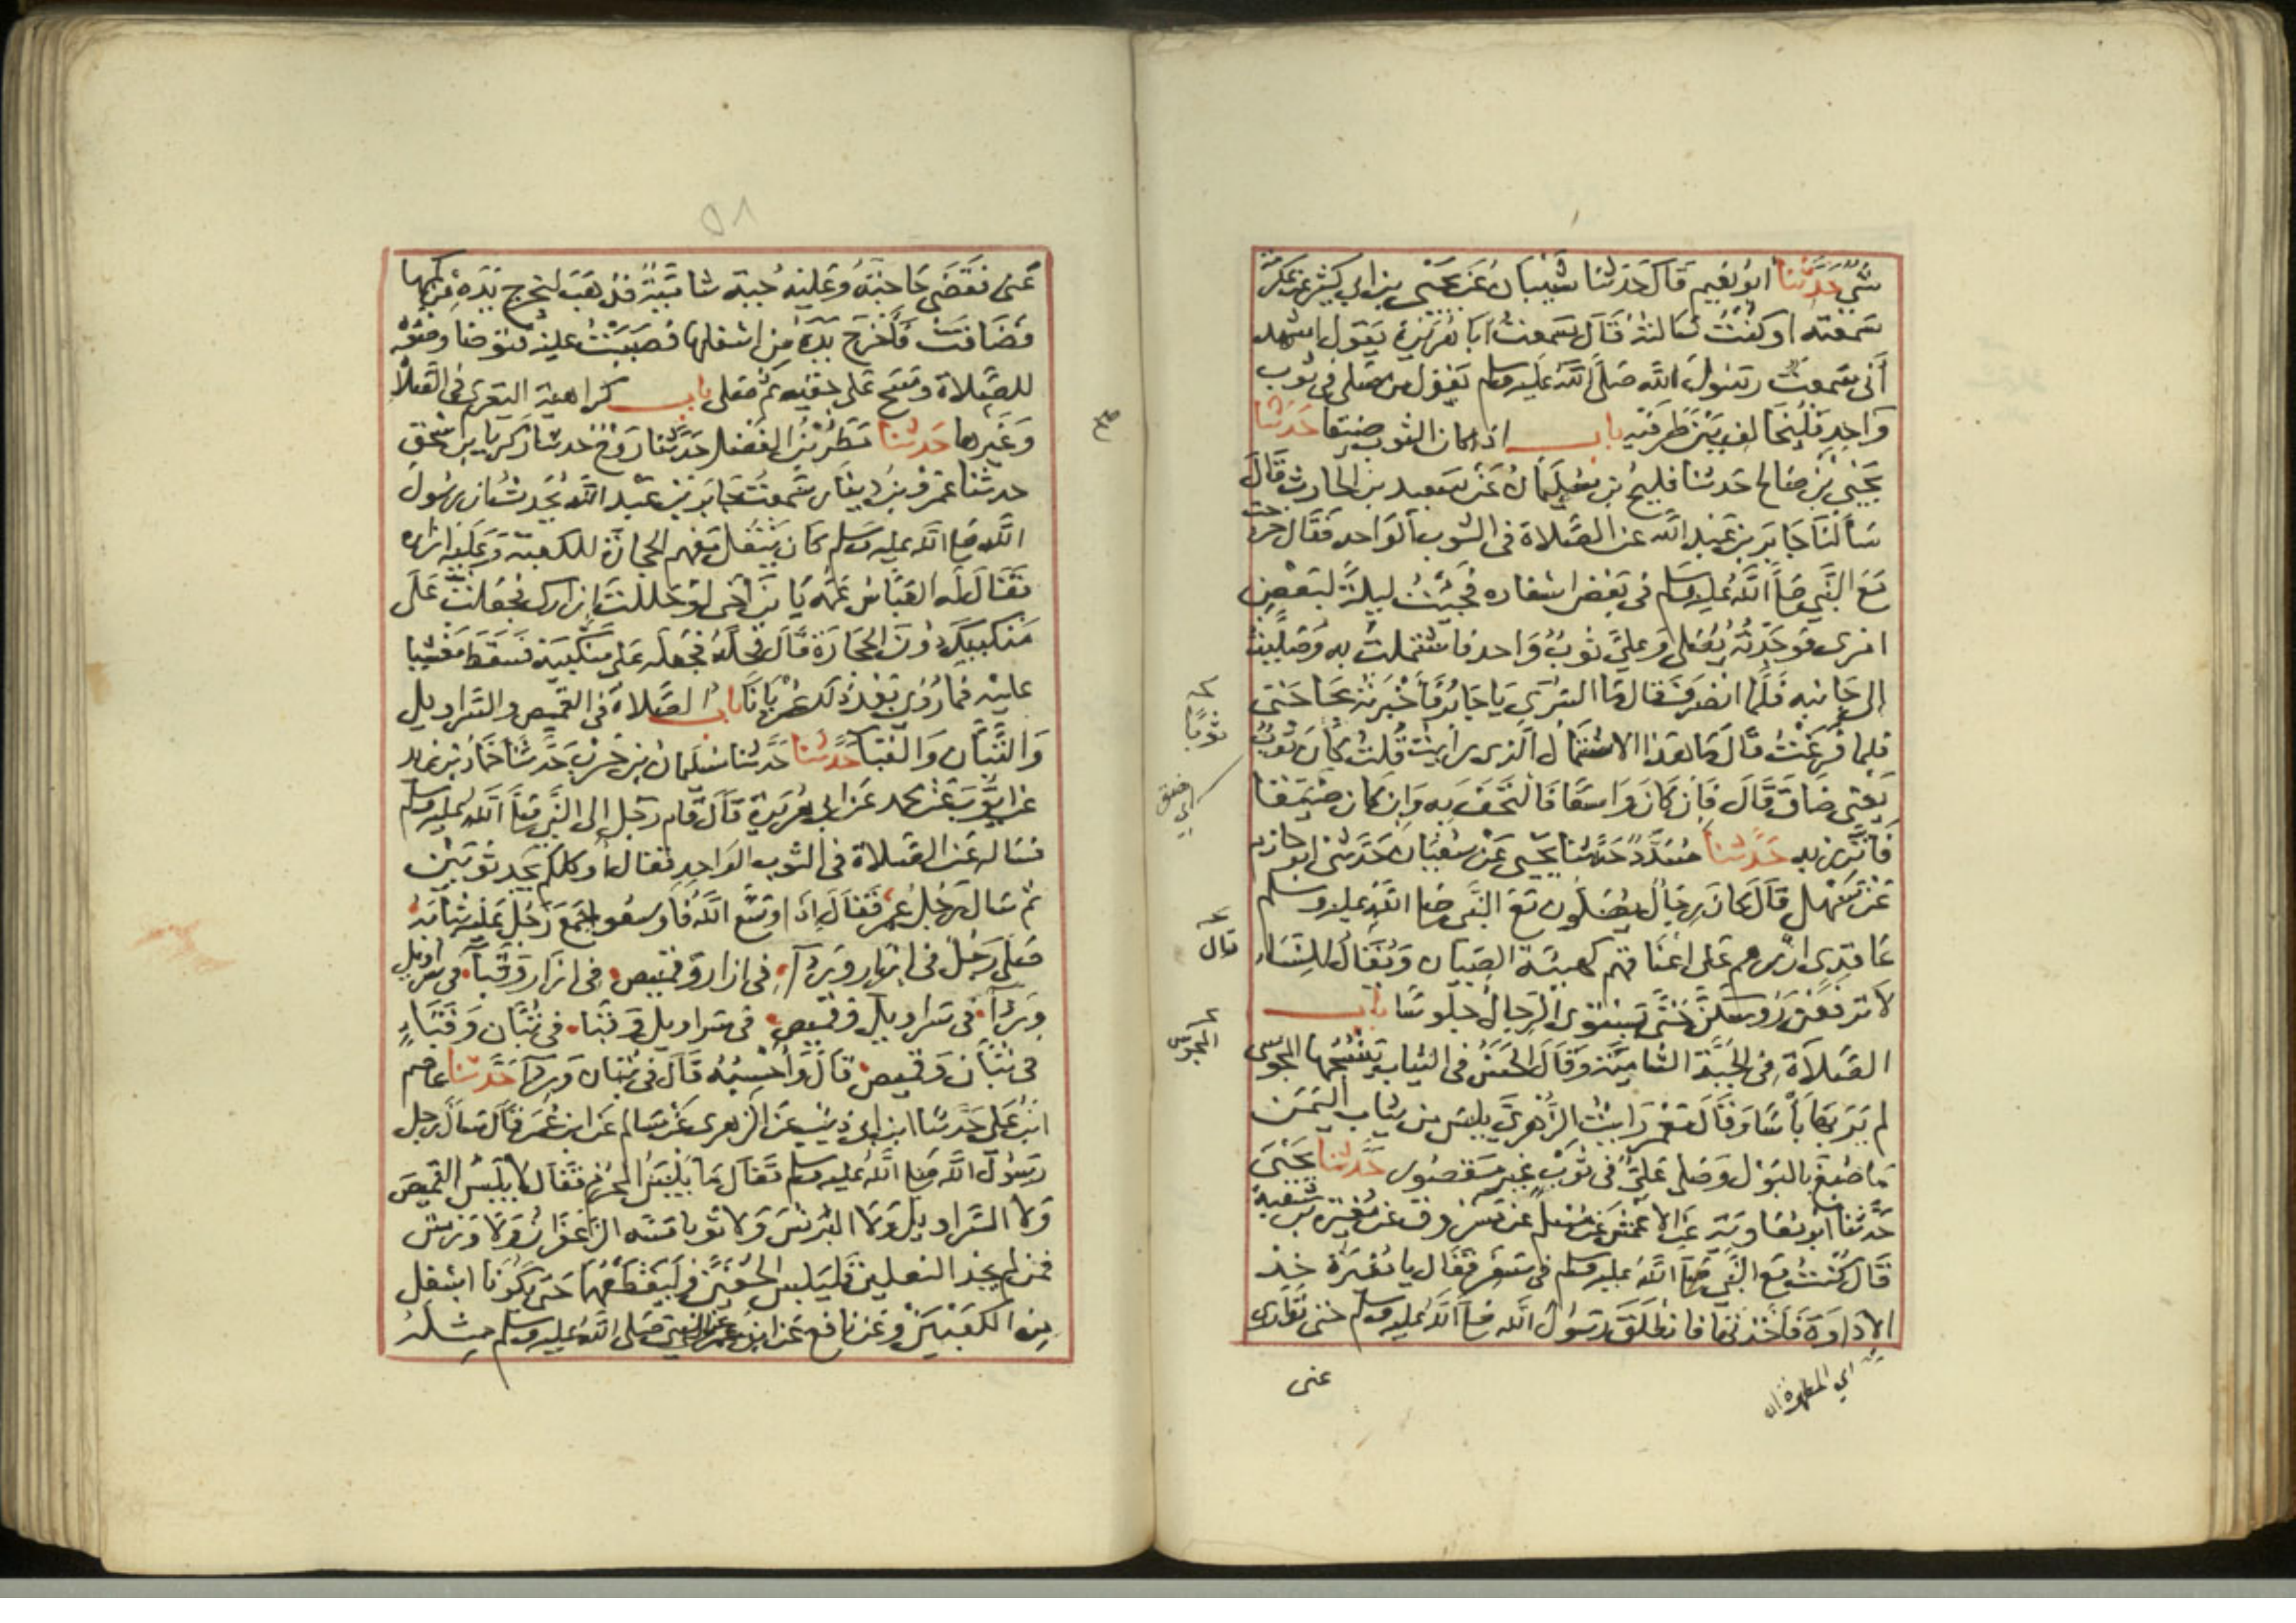 شيء حدثنا ابو نعيم قال حدثنا شيبان عن يحيى بن ابي كثير عن عكرمة
سمعته او كنت سالته قال سمعت ابا هريرة يقول اشهد
أني سمعت رسول الله صلى الله عليه وسلم يقول من صلى في ثوب
واحد فليخالف بين طرفيه باب اذا كان الثوب ضيقا حدثنا
يحيى بن صالح حدثنا فليح بن سليمان عن سعيد بن الحارث قال
سألنا جابر بن عبد الله عن الصلاة في الثوب الواحد فقال خرجت
مع النبي صلى الله عليه وسلم في بعض اسفاره فجئت ليلة لبعض
امري فوجدته يصلي وعلي ثوب واحد فاشتملت به وصليت
الى جانبه فلما انصرف قال ما السرى يا جابر فأخبرته بحاجتي
فلما فرغت قال ما هذا الاشتمال الذي رايت قلت كان ثوب
يعني ضاق قال فان كان واسعا فالتحف به وان كان ضيقا
فاتزر به حدثنا مسدد حدثنا يحيى عن سفيان حدثني ابو حازم
عن سهل قال كان رجال يصلون مع النبي صلى الله عليه وسلم
عاقدي ازرهم على اعناقهم كهيئة الصبيان ويقال للنساء
لا ترفعن رؤسكن حتى يستوي الرجال جلوسا باب
الصلاة في الجبة الشامية وقال الحسن في الثياب ينسجها المجوسي
لم ير بها بأسا وقال معمر رايت الزهري يلبس من ثياب اليمن
ما صبغ بالبول وصلى علي في ثوب غير مقصور حدثنا يحيى
حدثنا ابو معاوية عن الاعمش عن مسلم عن مسروق عن مغيرة بن شعبة
قال كنت مع النبي صلى الله عليه وسلم في سفر فقال يا مغيرة خذ
الاداوة فأخذتها فانطلق رسول الله صلى الله عليه وسلم حتى توارى
عنى
اي المطهرة
ثوبا
اي ضيق
قال
المجوس
٥٨
عنى فقضى حاجته وعليه جبة شامية فذهب ليخرج يده من كمها
فضاقت فأخرج يده من اسفلها فصببت عليه فتوضا وضوءه
للصلاة ومسح على خفيه ثم صلى باب كراهية التعري في الصلاة
وغيرها حدثنا مطر بن الفضل حدثنا روح حدثنا زكريا بن اسحق
حدثنا عمرو بن دينار سمعت جابر بن عبد الله يحدث ان رسول
الله صلى الله عليه وسلم كان ينقل معهم الحجارة للكعبة وعليه ازاره
فقال له العباس عمه يا ابن أخي لو حللت ازارك فجعلت على
منكبيك دون الحجارة قال فحله فجعله على منكبيه فسقط مغشيا
عليه فما رؤي بعد ذلك عريانا باب الصلاة في القميص والسراويل
والتبان والقبا حدثنا حدثنا سليمان بن حرب حدثنا حماد بن زيد
عن ايوب عن محمد عن ابي هريرة قال قام رجل الى النبي صلى الله عليه وسلم
فساله عن الصلاة في الثوب الواحد فقال أوكلكم يجد ثوبين
ثم سال رجل عمر فقال إذا وسع الله فاوسعوا جمع رجل عليه ثيابه
صلى رجل في ازار ورداء في ازار وقميص في ازار وقباء في سراويل
ورداء في سراويل وقميص في سراويل وقباء في تبان وقباء
في تبان وقميص قال وأحسبه قال في تبان ورداء حدثنا عاصم
ابن علي حدثنا ابن ابي ذئب عن الزهري عن سالم عن ابن عمر قال سال رجل
رسول الله صلى الله عليه وسلم فقال ما يلبس المحرم فقال لا يلبس القميص
ولا السراويل ولا البرنس ولا ثوبا مسه الزعفران ولا ورس
فمن لم يجد النعلين فليلبس الخفين وليقطعهما حتى يكونا اسفل
من الكعبين وعن نافع عن ابن عمر عن النبي صلى الله عليه وسلم مثله